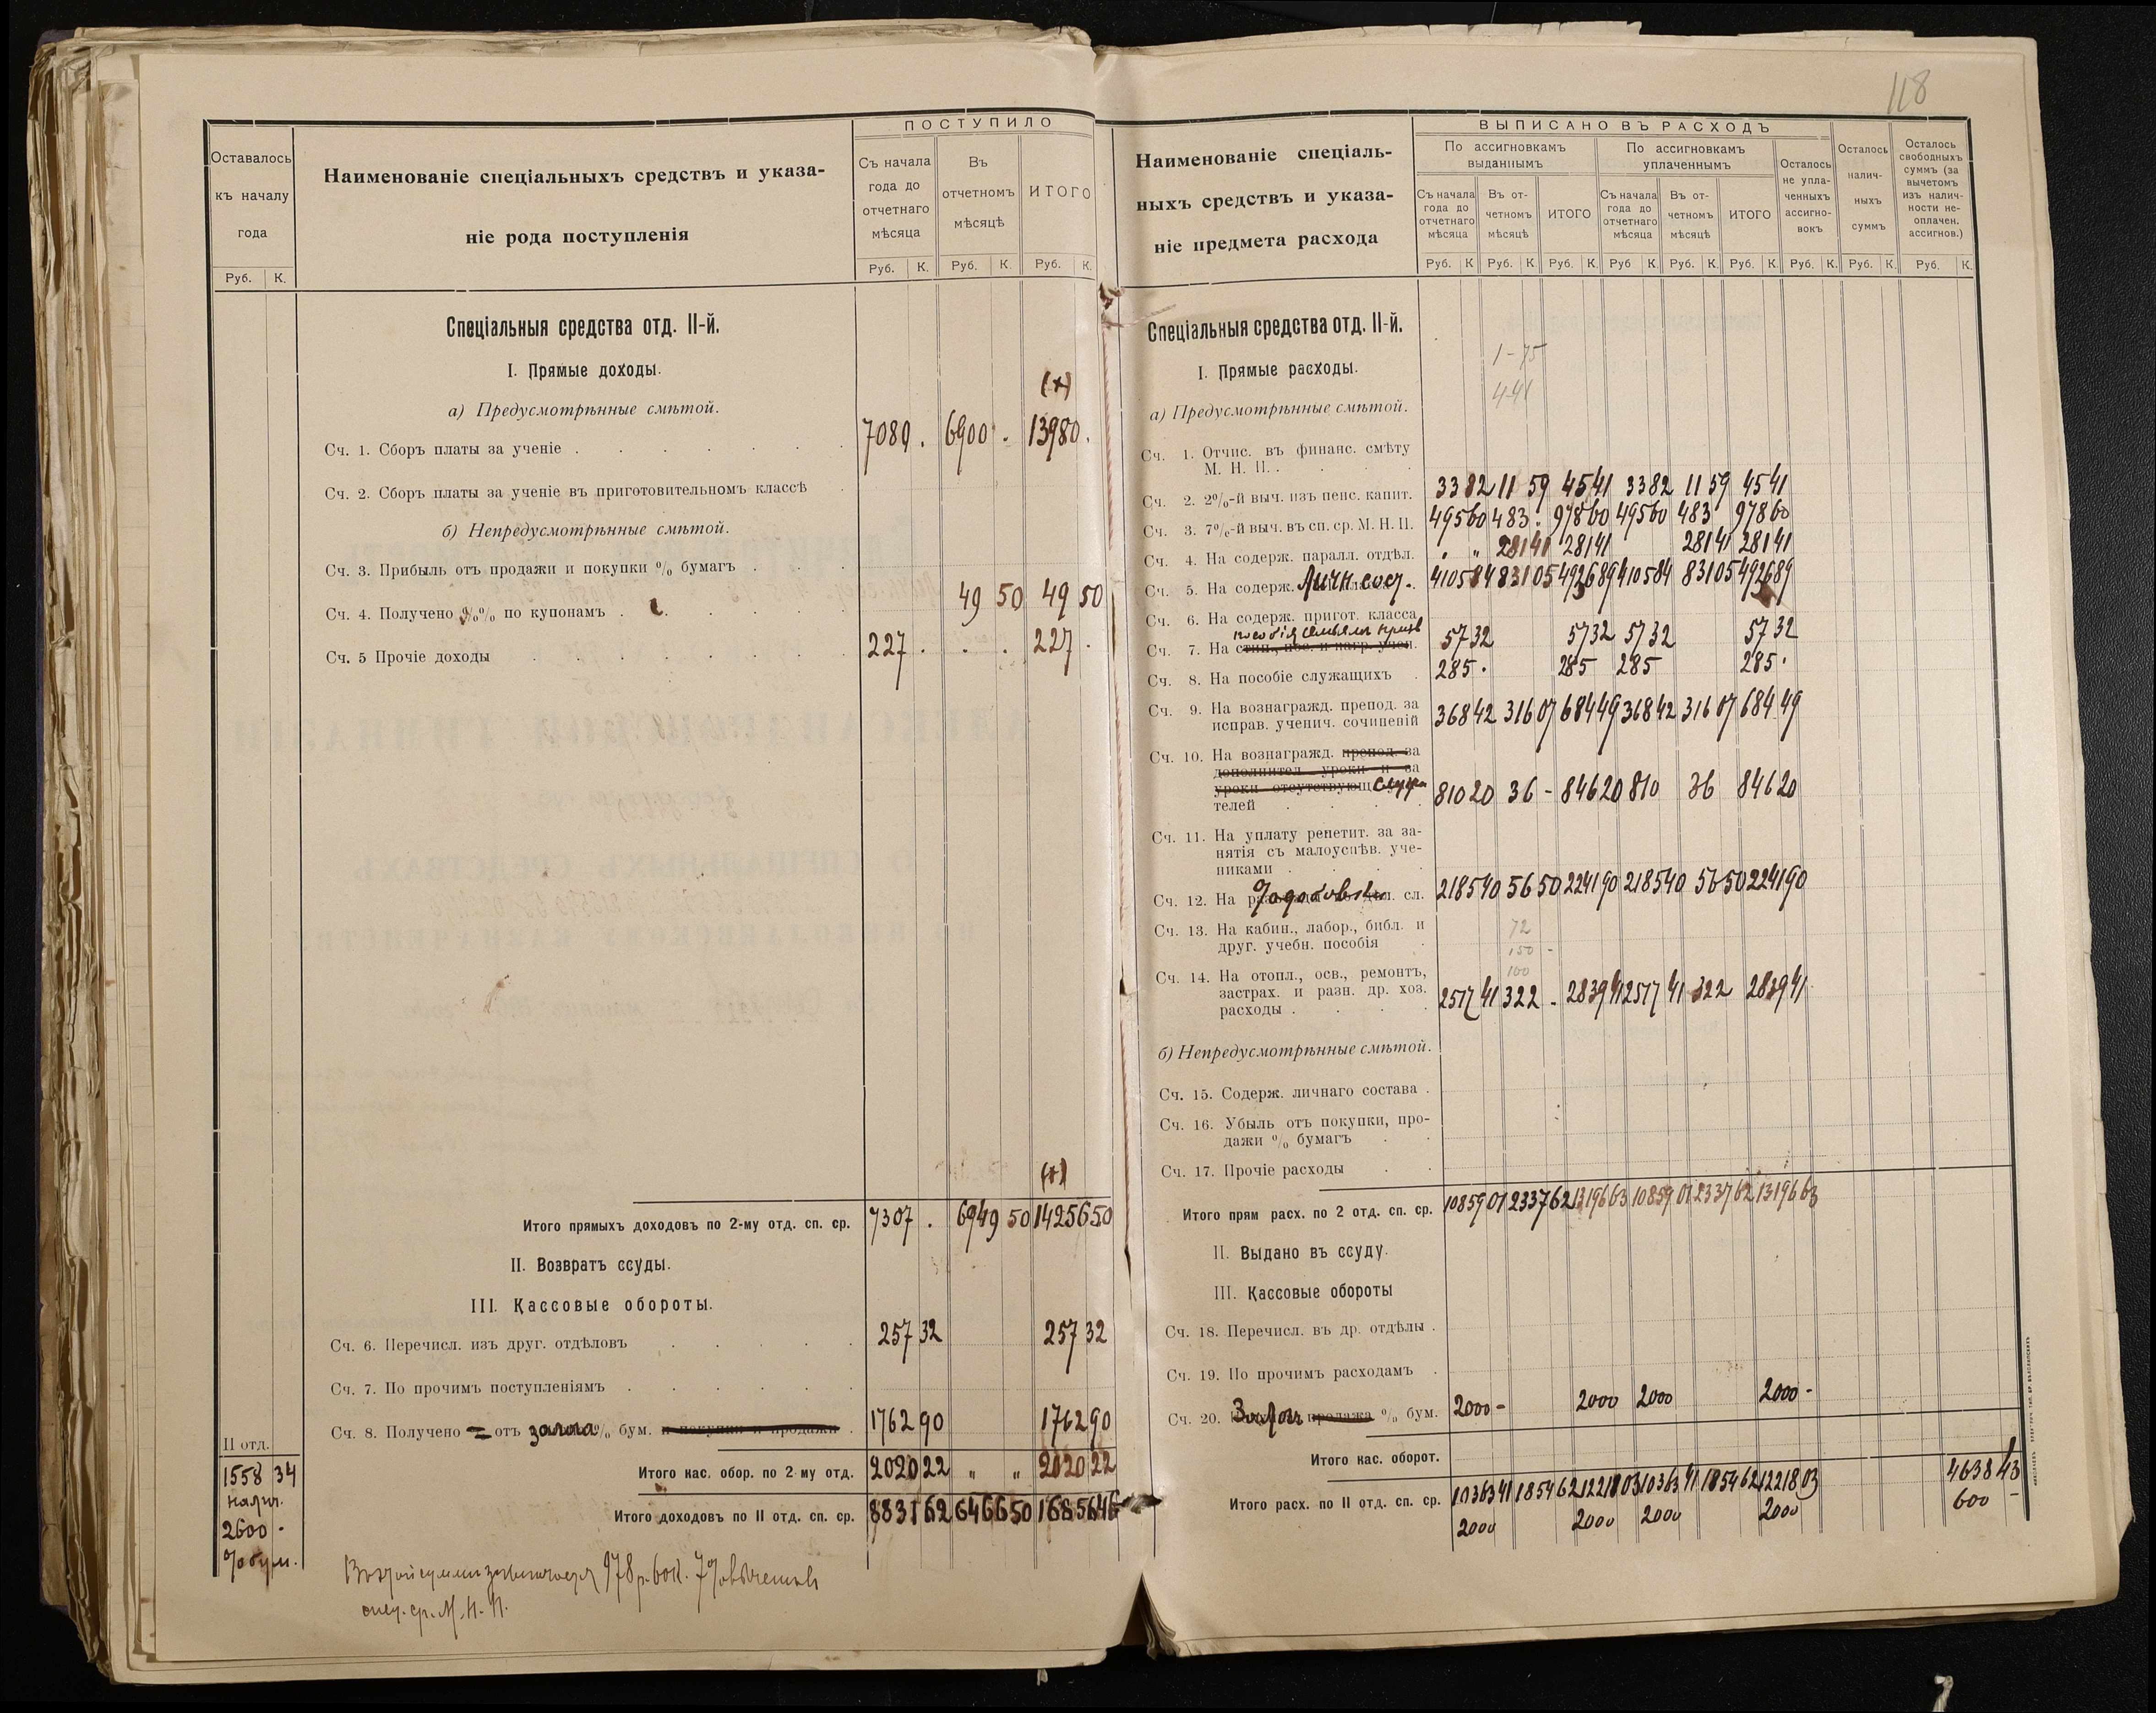 118
ПОСТУПИЛО
Оставалось къ началу года
Наименованіе спеціальныхъ средствъ и указа-
ніе рода поступленія
Съ начала года до отчетнаго мѣсяца
Въ отчетномъ мѣсяцѣ
ИТОГО
Руб. К. Руб. К. Руб. К. Руб. К.
Спеціальныя средства отд. II-й.
I. Прямые доходы.
(+)
а) Предусмотрѣнные смѣтой.
Сч. 1. Сборъ платы за ученіе 7080 . 6900 . 13980 .
Сч. 2. Сборъ платы за ученіе въ приготовительномъ классѣ
б) Непредусмотрѣнные смѣтой.
Сч. 3. Прибыль отъ продажи и покупки % бумагъ
Сч. 4. Получено %% по купонамъ 49 50 49 50
Сч. 5 Прочіе доходы 227 . . . 227 .
(+)
Итого прямыхъ доходовъ по 2-му отд. сп. ср. 7307 . 6949 50 14256 50
II. Возвратъ ссуды.
III. Кассовые обороты.
Сч. 6. Перечисл. изъ друг. отдѣловъ 257 32 257 32
Сч. 7. По прочимъ поступленіямъ
Сч. 8. Получено отъ залога % бум. и покупки и продажи 1762 90 1762 90
II отд.
Итого кас. обор. по 2 му отд. 2020 22 „ „ 2020 22
1558 34
налич.
Итого доходовъ по II отд. сп. ср. 8831 62 6466 50 16856 46
2600 -
% бум.
978 р. 60 к. 7%
спец. ср. М. Н. П.
ВЫПИСАНО ВЪ РАСХОДЪ
Наименованіе спеціаль-
ныхъ средствъ и указа-
ніе предмета расхода
По ассигновкамъ выданнымъ
По ассигновкамъ уплаченнымъ
Съ начала года до отчетнаго мѣсяца
Въ от-четномъ мѣсяцѣ
ИТОГО
Съ начала года до отчетнаго мѣсяца
Въ от-четномъ мѣсяцѣ
ИТОГО
Осталось не упла-ченныхъ ассигно-вокъ
Осталось налич-ныхъ суммъ
Осталось свободныхъ суммъ (за вычетомъ изъ налич-ности не-оплачен. ассигнов.)
Руб. К Руб. К Руб. К. Руб К. Руб. К. Руб. К. Руб. К. Руб. К. Руб. К.
Спеціальныя средства отд. II-й.
1-75
I. Прямые расходы.
4-41
а) Предусмотрѣнные смѣтой.
Сч. 1. Отчис. въ финанс. смѣту
М. Н. П.
Сч. 2. 2%-й выч. изъ пенс. капит. 33 82 11 59 45 41 33 82 11 59 45 41
Сч. 3. 7%-й выч. въ сп. ср. М. Н. П. 495 60 483 . 978 60 495 60 483 978 60
Сч. 4. На содерж. паралл. отдѣл. . „ 281 41 281 41 281 41 281 41
Сч. 5. На содерж. Личн. сост. 4105 84 831 05 4926 89 4105 84 831 05 4926 89
Сч. 6. На содерж. пригот. класса
пособія семьямъ призв
Сч. 7. На стип., пос. и нагр. учен. 57 32 57 32 57 32 57 32
Сч. 8. На пособіе служащихъ 285 . 285 285 285 .
Сч. 9. На вознагражд. препод. за
исправ. ученич. сочиненій 368 42 316 07 684 49 368 42 316 07 684 49
Сч. 10. На вознагражд. препод. за
дополнител. уроки и за
уроки отсутствующ
телей 810 20 36 - 846 20 810 36 846 20
Сч. 11. На уплату репетит. за за-
нятія съ малоуспѣв. уче-
никами
Сч. 12. На сл. 2185 40 56 50 2241 90 2185 40 56 50 2241 90
Сч. 13. На кабин., лабор., библ. и
друг. учебн. пособія
72
150 -
100
Сч. 14. На отопл., осв., ремонтъ,
застрах. и разн. др. хоз.
расходы 2517 41 322 . 2839 41 2517 41 322 2839 41
б) Непредусмотрѣнные смѣтой.
Сч. 15. Содерж. личнаго состава
Сч. 16. Убыль отъ покупки, про-
дажи % бумагъ
Сч. 17. Прочіе расходы
Итого прям расх. по 2 отд. сп. ср. 10859 01 2337 62 13196 63 10859 01 2337 62 13196 63
II. Выдано въ ссуду.
III. Кассовые обороты
Сч. 18. Перечисл. въ др. отдѣлы
Сч. 19. По прочимъ расходамъ
Сч. 20. Залогъ продажа % бум. 2000 - 2000 2000 2000 -
Итого кас. оборот.
Итого расх. по II отд. сп. ср. 10363 41 1854 62 12218 03 10363 41 1854 62 12218 03 4638 43
2000 2000 2000 2000 600 -